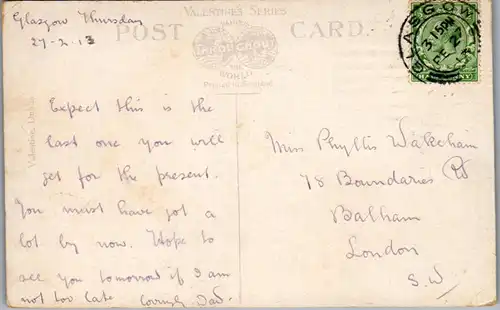 Glasgow Thursday
27-2-13
VALENTINE'S SERIES
POST CARD.
FAMOUS
THROUGHOUT
THE
WORLD
Printed in Scotland
GLASGOW
3.15 PM
FE 27
13
Expect this is the
last one you will
get for the present.
You must have got a
lot by now. Hope to
see you tomorrow if I am
not too late Dad.
Miss Phyllis Wakeham
78 Boundaries Rd
Balham
London
S.W